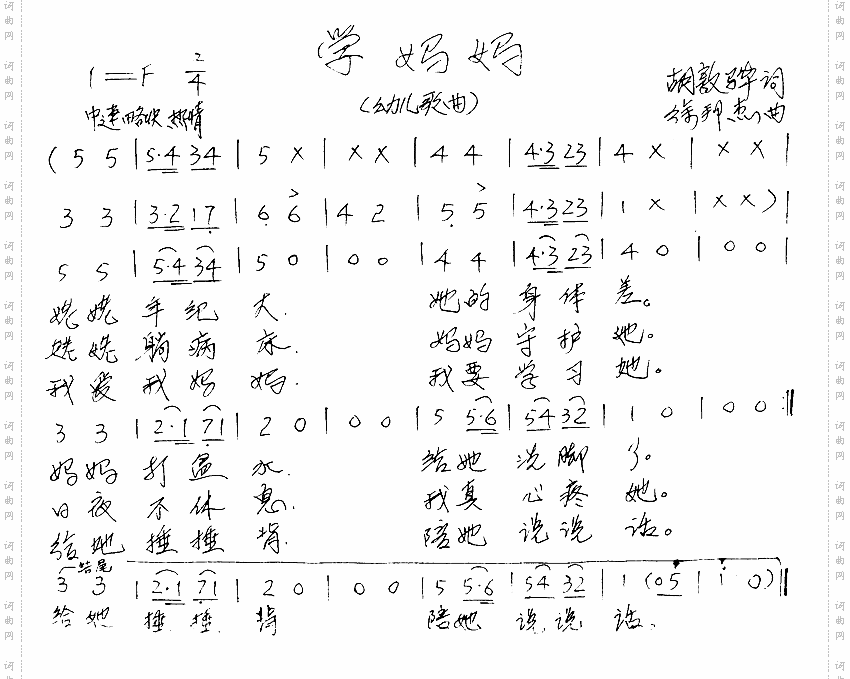 学妈妈
1=F 2/4
(幼儿歌曲)
胡敦骅词
中速略快 热情
曲
( 5 5 | 5·4 34 | 5 X | X X | 4 4 | 4·3 23 | 4 X | X X |
3 3 | 3·2 17 | 6 6 | 4 2 | 5 5 | 4·3 23 | 1 X | X X ) |
5 5 | 5·4 34 | 5 0 | 0 0 | 4 4 | 4·3 23 | 4 0 | 0 0 |
姥姥年纪大. 她的身体差。
姥姥躺病床. 妈妈守护她。
我爱我妈妈. 我要学习她。
3 3 | 2·1 71 | 2 0 | 0 0 | 5 5·6 | 54 32 | 1 0 | 0 0 :||
妈妈打盆水. 给她洗脚了。
日夜不休息. 我真心疼她。
给她捶捶背. 陪她说说话。
结尾
3 3 | 2·1 71 | 2 0 | 0 0 | 5 5·6 | 54 32 | 1 (05 | i 0) ||
给她捶捶背 陪她说说话.
词曲网